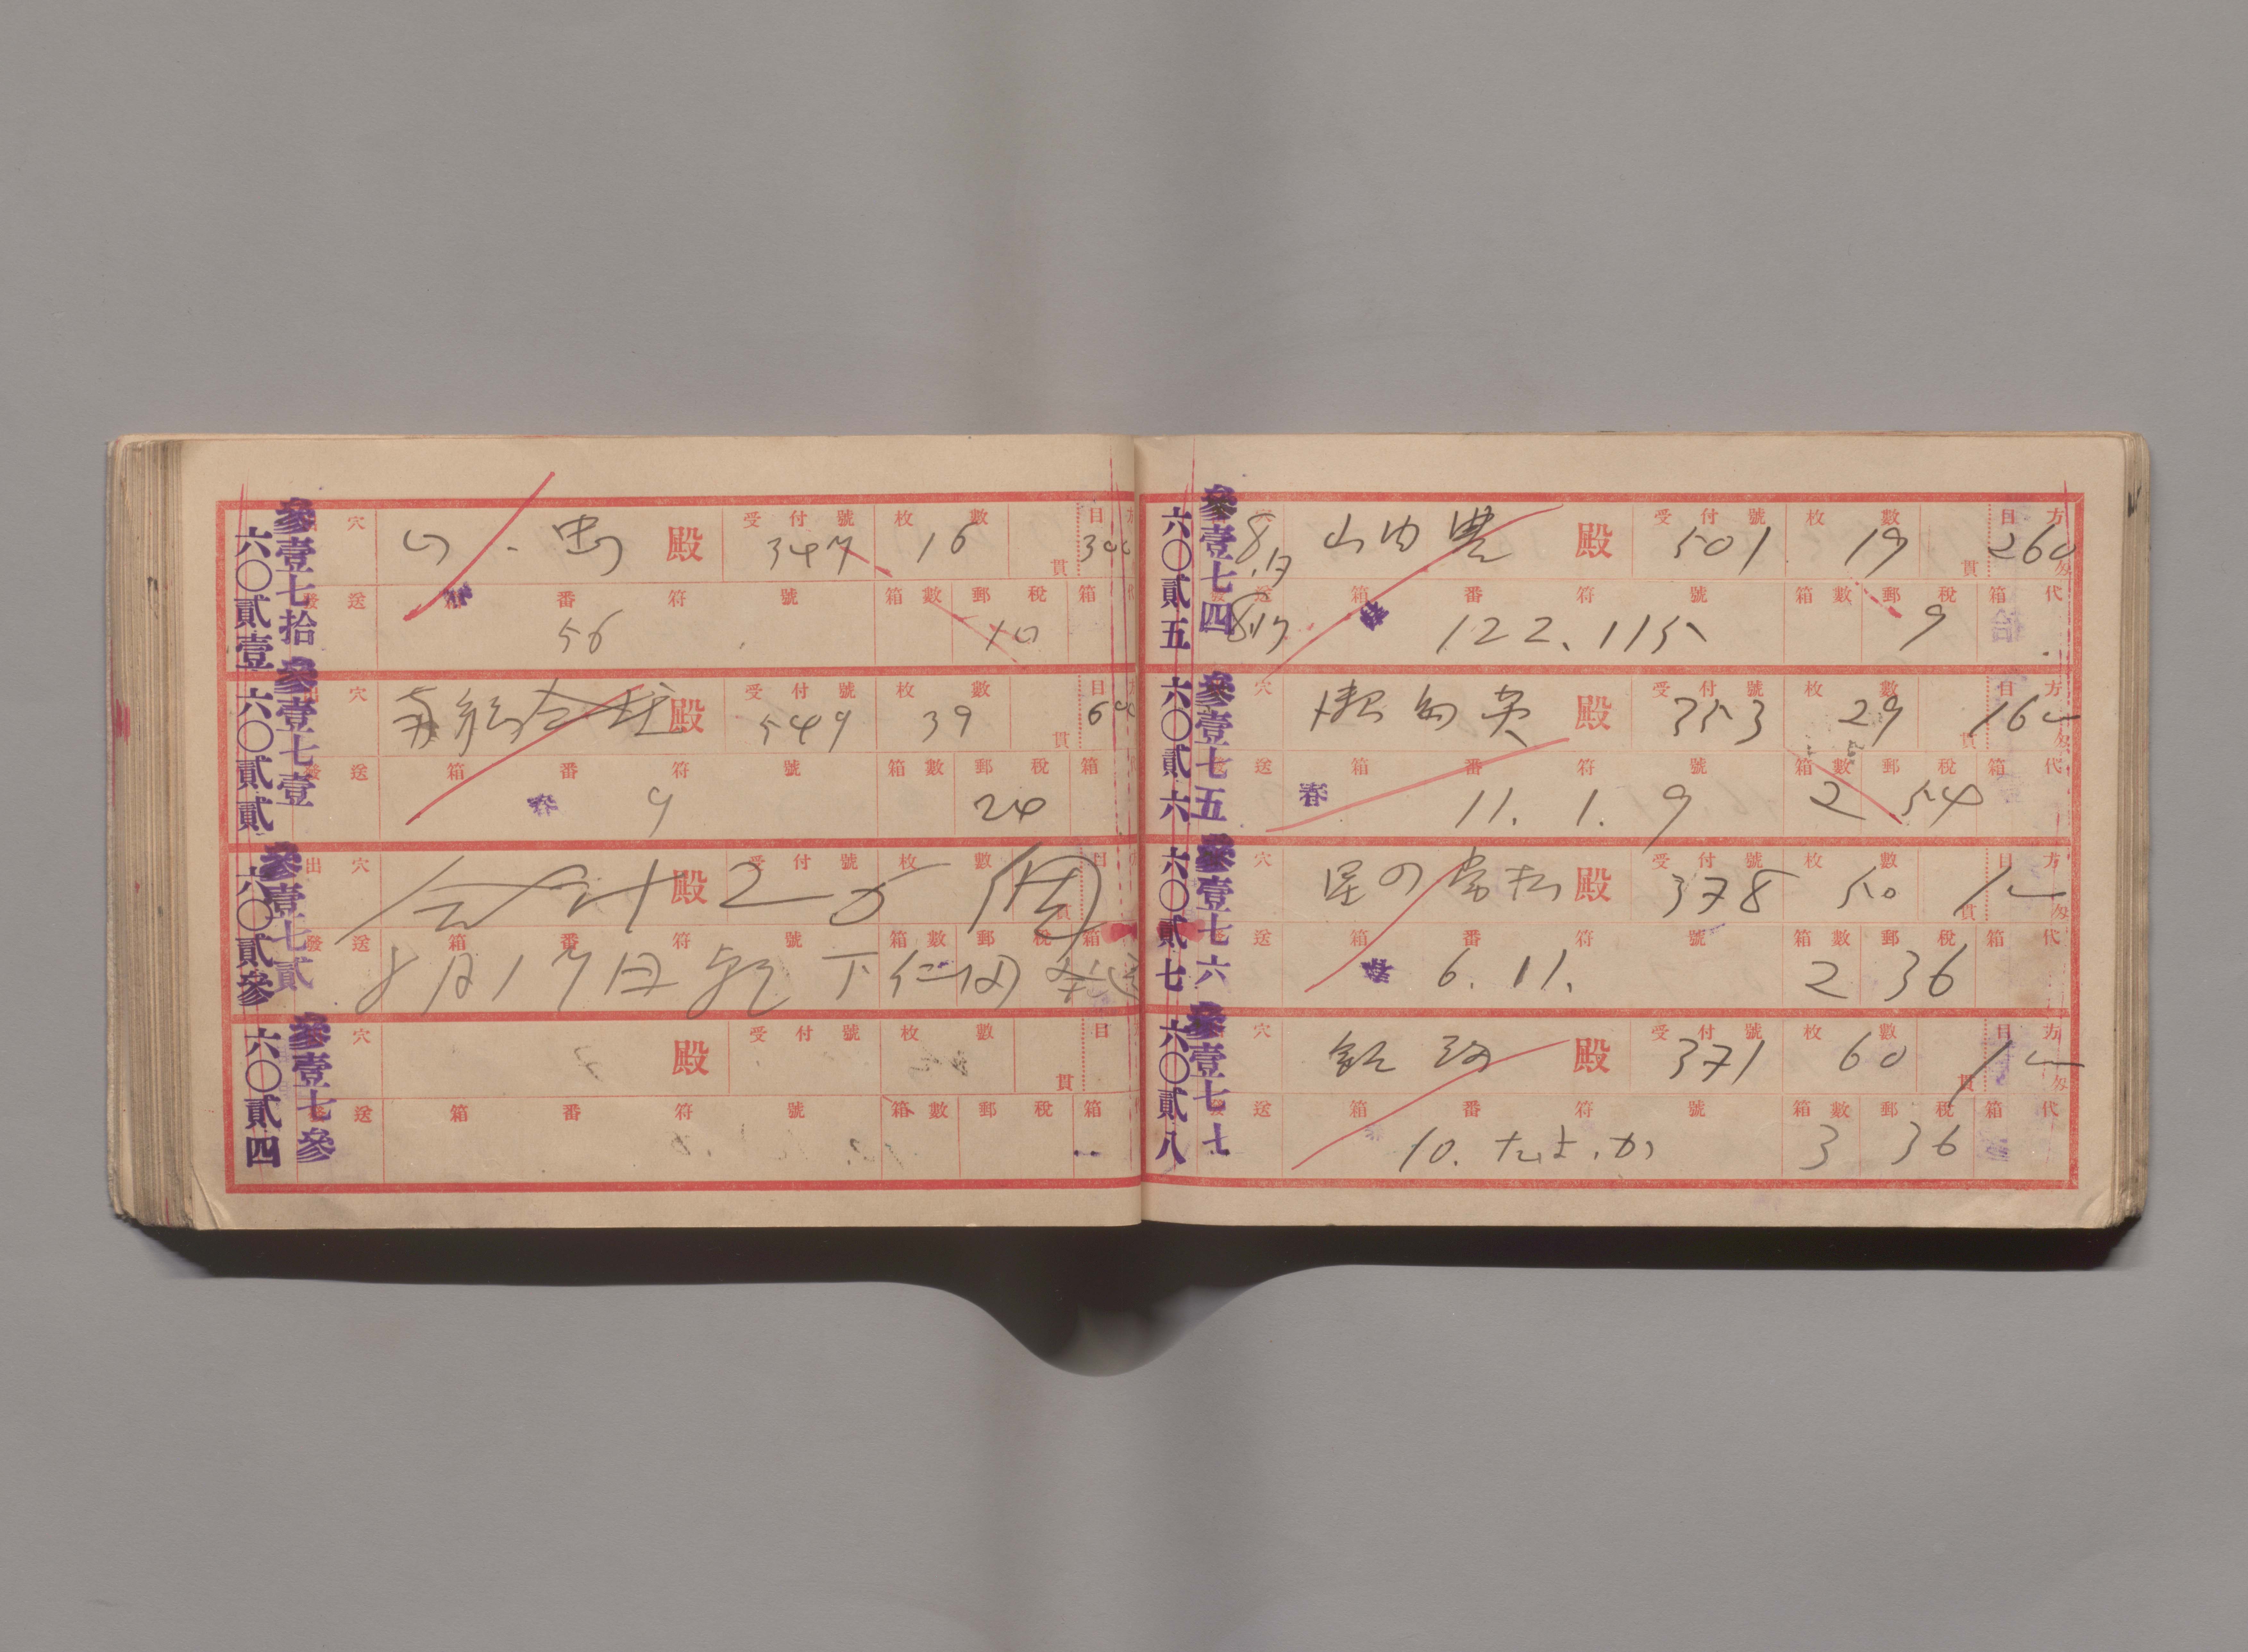 六〇貳壹 參壹七拾
穴 殿 受付號 347 枚數 16 貫 目
發送 箱番符號 56 箱數 郵稅 10 箱
六〇貳貳 參壹七壹
出穴 殿 受付號 549 枚數 39 貫 目
發送 箱番符號 9 箱數 郵稅 24 箱
春
六〇貳參 參壹七貳
出穴 合計 殿 受付號 25 枚數 個 貫 目
發送 箱番符號 箱數 郵稅 箱
8月17日 下仁田
六〇貳四 參壹七參
穴 殿 受付號 枚數 貫 目
發送 箱番符號 箱數 郵稅 箱
六〇貳五 參壹七四
8.17 山内豊 殿 受付號 501 枚數 19 貫 目方 260 匁
8.17 發送 箱番符號 122.115 箱數 郵稅 9 箱代
六〇貳六 參壹七五
穴 殿 受付號 353 枚數 29 貫 目方 匁
送 箱番符號 11.1.9 箱數 2 郵稅 54 箱代
春
六〇貳七 參壹七六
穴 星の常松 殿 受付號 378 枚數 50 貫 目方 匁
送 箱番符號 6.11. 箱數 2 郵稅 36 箱代
六〇貳八 參壹七七
穴 殿 受付號 371 枚數 60 貫 目方 匁
送 箱番符號 10.たよ.か 箱數 3 郵稅 36 箱代